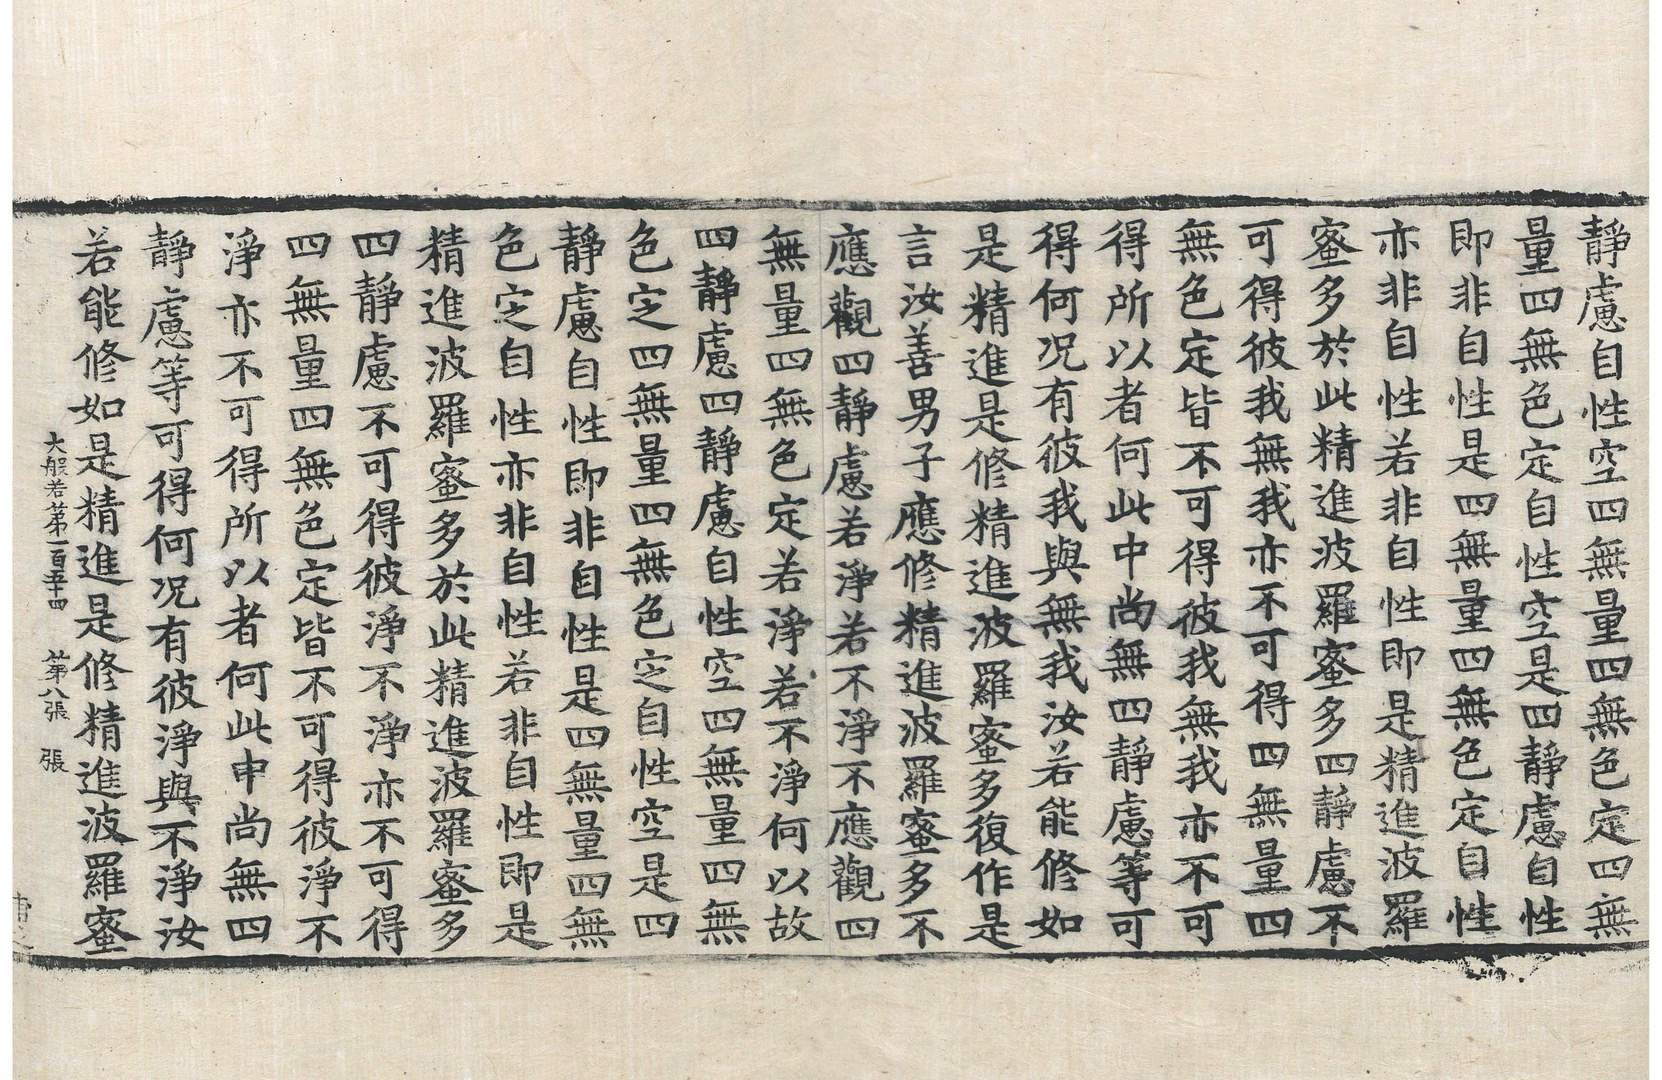 靜慮自性空四無量四無色定四無
量四無色定自性空是四靜慮自性
即非自性是四無量四無色定自性
亦非自性若非自性即是精進波羅
蜜多於此精進波羅蜜多四靜慮不
可得彼我無我亦不可得四無量四
無色定皆不可得彼我無我亦不可
得所以者何此中尚無四靜慮等可
得何况有彼我與無我汝若能修如
是精進是修精進波羅蜜多復作是
言汝善男子應修精進波羅蜜多不
應觀四靜慮若淨若不淨不應觀四
無量四無色定若淨若不淨何以故
四靜慮四靜慮自性空四無量四無
色定四無量四無色定自性空是四
靜慮自性即非自性是四無量四無
色定自性亦非自性若非自性即是
精進波羅蜜多於此精進波羅蜜多
四靜慮不可得彼淨不淨亦不可得
四無量四無色定皆不可得彼淨不
淨亦不可得所以者何此中尚無四
靜慮等可得何况有彼淨與不淨汝
若能修如是精進是修精進波羅蜜
大般若第一百五十四 第八張 張